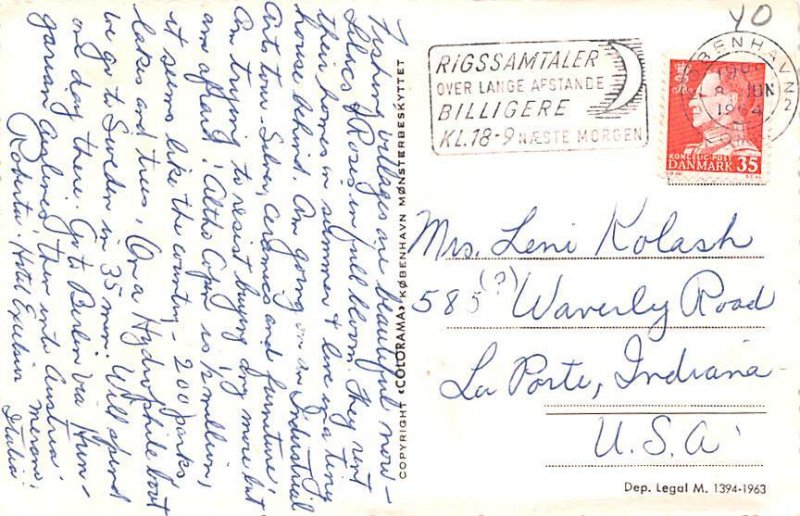 Fishing villages are beautiful now –
Lilacs & Roses in full bloom. They rent
their homes in summer & live in a teny
house behind. Am going on an Industrial
Arts tour – Silver, ceramics and furniture.
Am trying to resist buying any more but
am afraid! Altho Cop'n is 1/2 million,
it seems like the country – 200 parks,
lakes and trees. On a Hydrophile boat
we go to Sweden in 35 min. Will spend
one day there. Go to Berlin via Hun-
garian airlines then into Austria.
Roberta. Hotel Excelsior Merano,
Italia
COPYRIGHT «COLORAMA» KØBENHAVN MØNSTERBESKYTTET
RIGSSAMTALER
OVER LANGE AFSTANDE
BILLIGERE
KL. 18-9 NÆSTE MORGEN
40
KØBENHAVN
KONGELIG POST
DANMARK 35
Mrs. Leni Kolash
585 (?) Waverly Road
La Porte, Indiana
U.S.A.
Dep. Legal M. 1394-1963